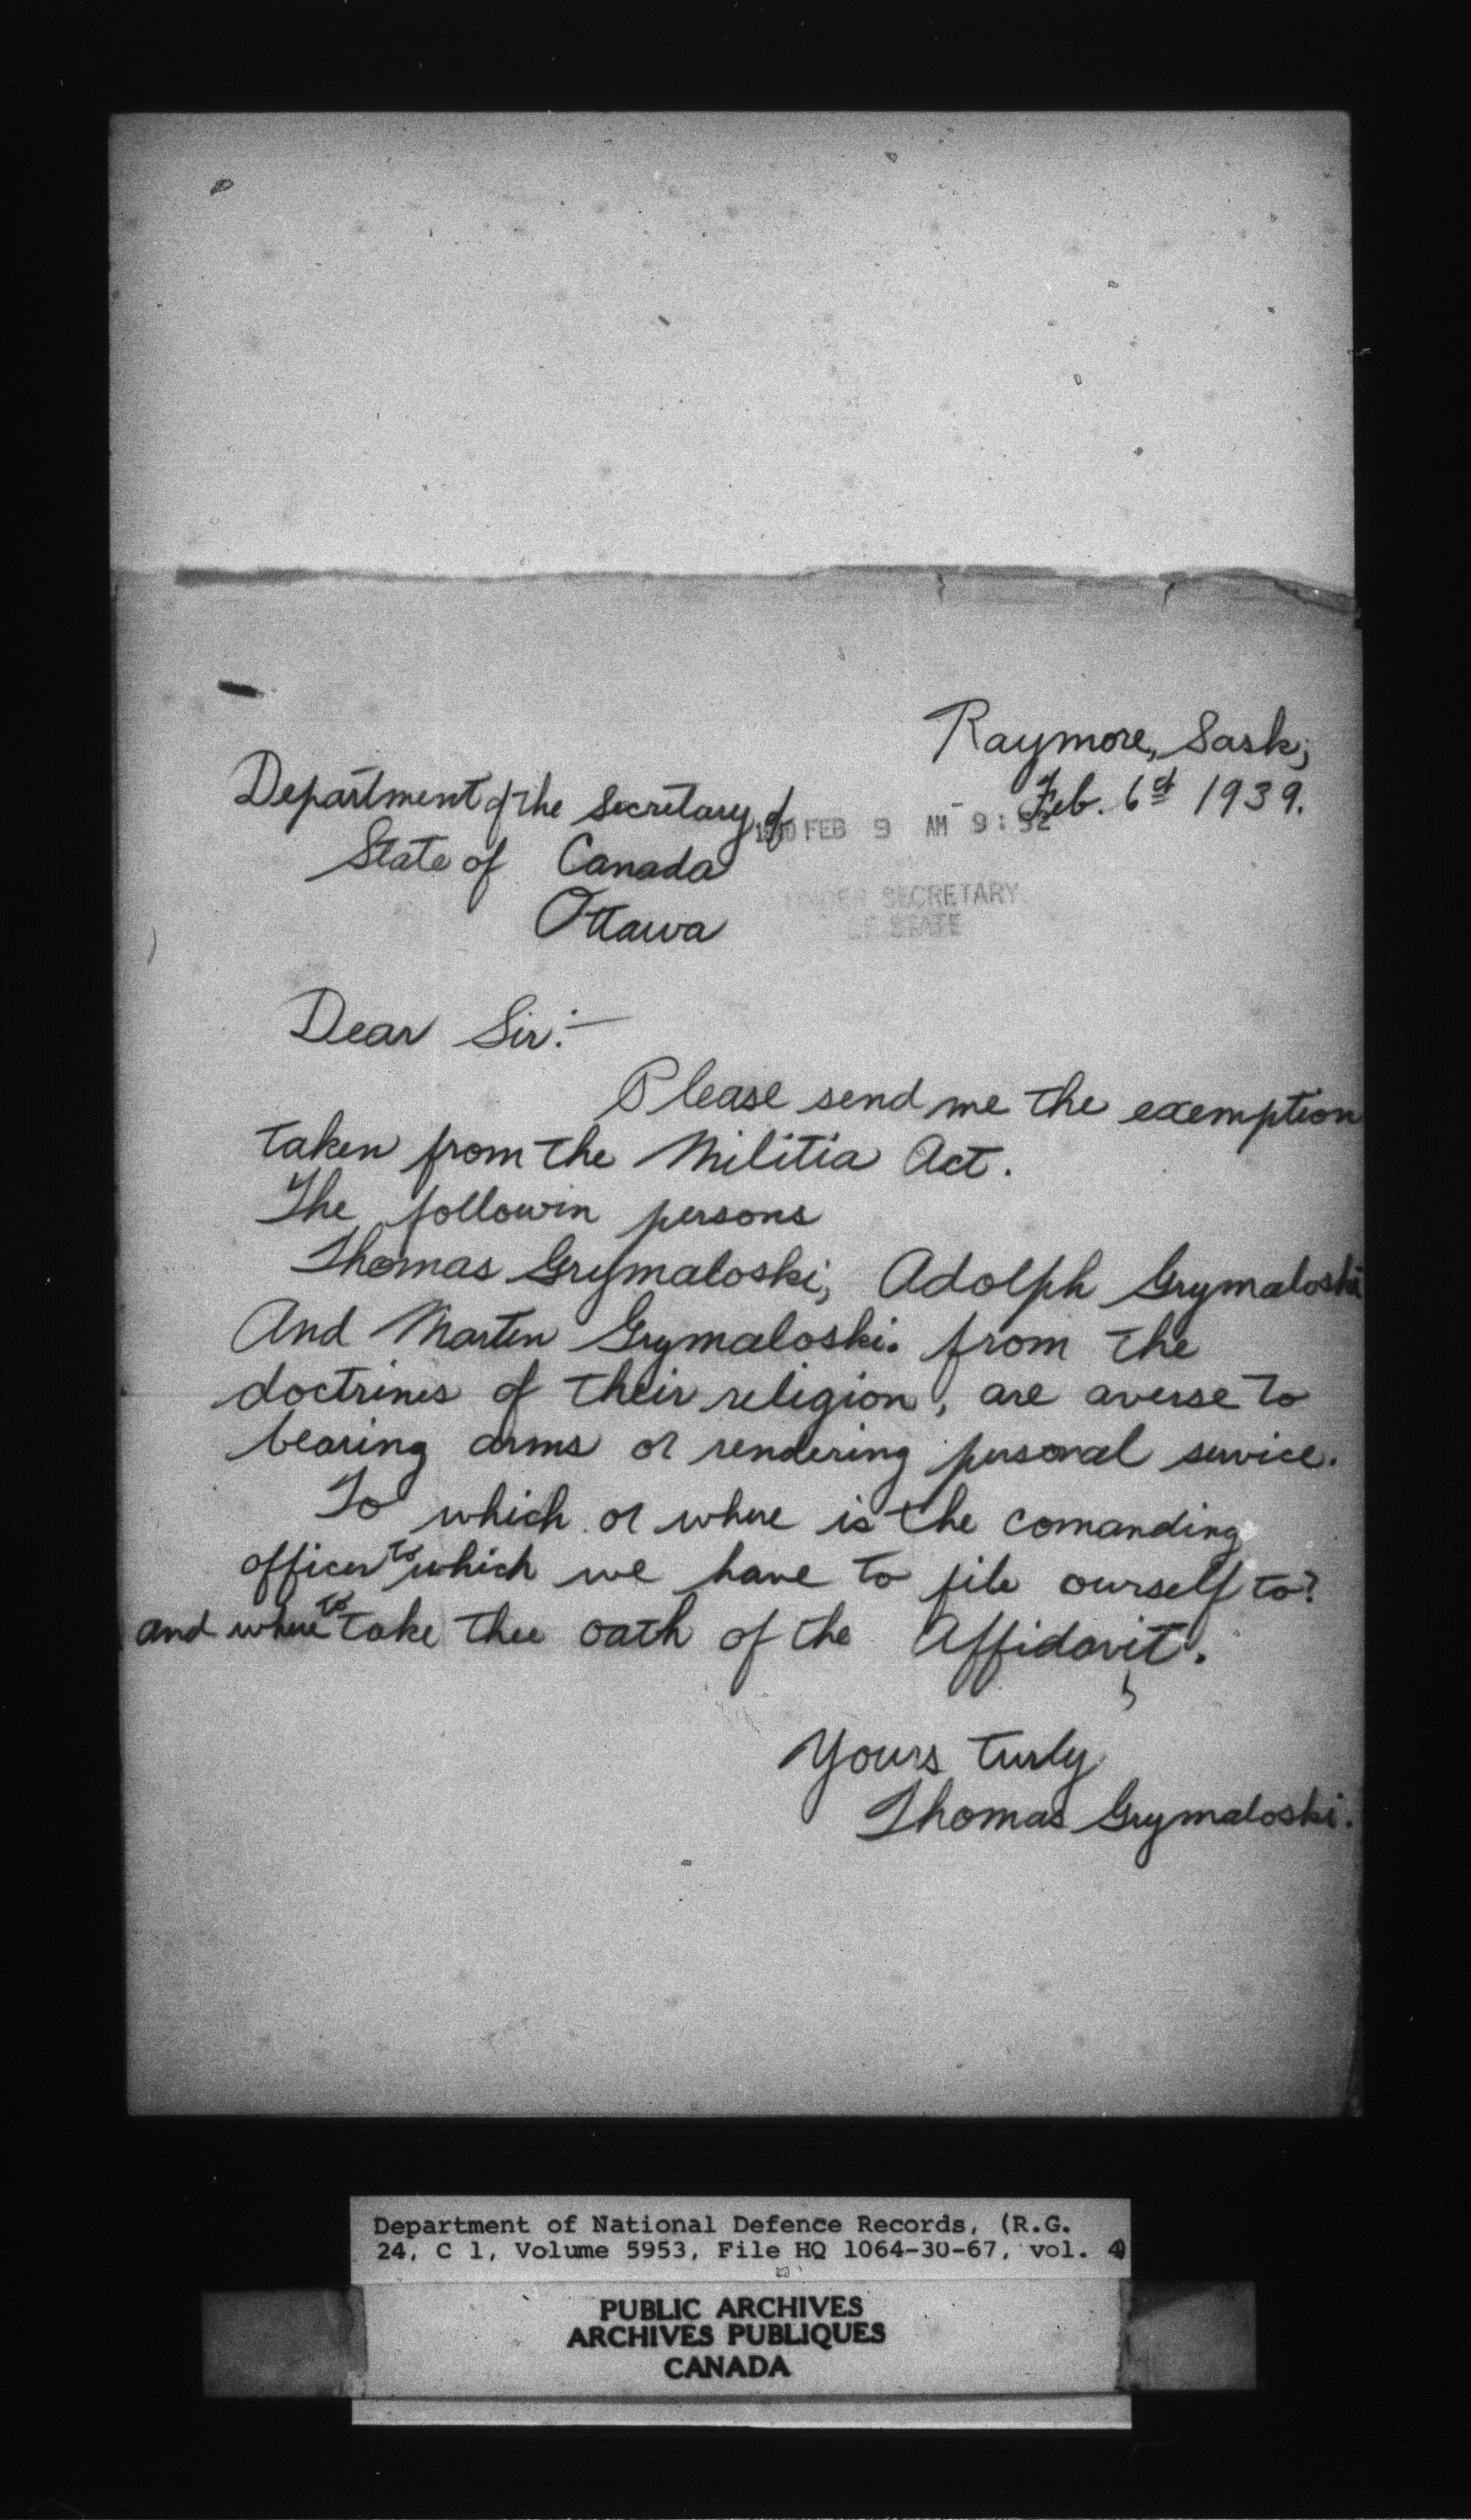 Raymore, Sask,
Feb. 6th 1939.
Department of the Secretary of
State of Canada
Ottawa
FEB 9 AM 9:52
UNDER SECRETARY
OF STATE
Dear Sir:-
Please send me the exemption
taken from the Militia Act.
The followin persons
Thomas Grymaloski, Adolph Grymaloski
And Marten Grymaloski. from the
doctrines of their religion, are averse to
bearing arms or rendering pusonal service.
To which or where is the comanding
officer to which we have to file ourself to?
and where to take thee oath of the Affidavit.
Yours turly
Thomas Grymaloski.
Department of National Defence Records, (R.G.
24, C 1, Volume 5953, File HQ 1064-30-67, vol. 4)
PUBLIC ARCHIVES
ARCHIVES PUBLIQUES
CANADA